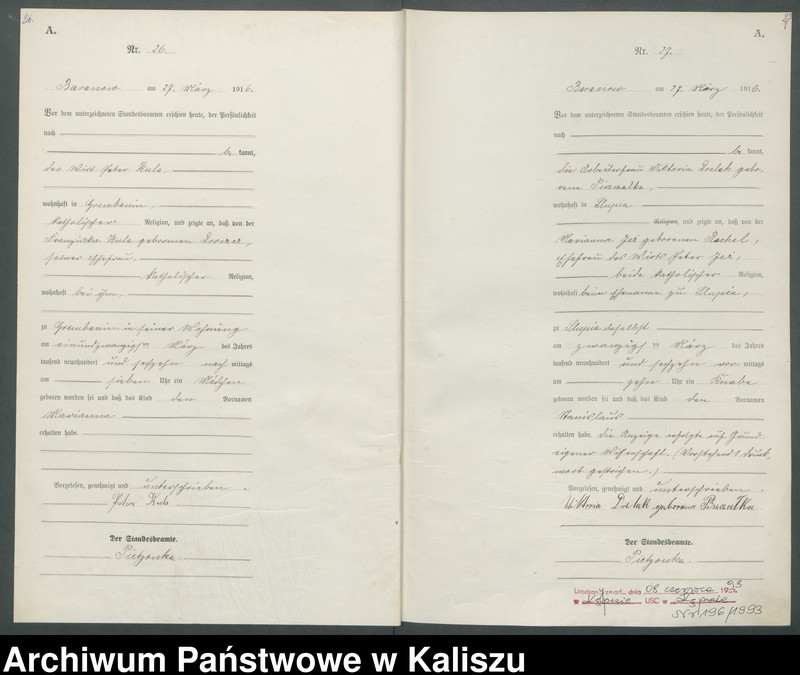 26.
A.
Nr. 26.
Baranow am 27. März 1916.
Vor dem unterzeichneten Standesbeamten erschien heute, der Persönlichkeit
nach
be kannt,
der Wirt Peter Kula,
wohnhaft in Grembanin,
katholischer Religion, und zeigte an, daß von der
Franziska Kula geborenen
seiner Ehefrau,
katholischer Religion,
wohnhaft bei ihm,
zu Grembanin in seiner Wohnung
am einundzwanzigsten März des Jahres
tausend neunhundert und sechzehn nach mittags
um sieben Uhr ein Mädchen
geboren worden sei und daß das Kind den Vornamen
Marianna
erhalten habe.
Vorgelesen, genehmigt und unterschrieben.
Peter Kula
Der Standesbeamte.
Pietzonka.
27
A.
Nr. 27.
Baranow am 27. März 1916.
Vor dem unterzeichneten Standesbeamten erschien heute, der Persönlichkeit
nach
be kannt,
die Arbeiterfrau Viktoria Drelak gebo-
rene
wohnhaft in Slupia
Religion, und zeigte an, daß von der
Marianna Jeż geborenen Rachel,
Ehefrau des Wirts Peter Jeż,
beide katholischer Religion,
wohnhaft beim Ehemanne zu Slupia,
zu Slupia daselbst
am zwanzigsten März des Jahres
tausend neunhundert und sechzehn vor mittags
um zehn Uhr ein Knabe
geboren worden sei und daß das Kind den Vornamen
Stanislaus
erhalten habe. Die Anzeige erfolgte auf Grund
eigener Wissenschaft. (Vorstehend 1 Druck-
wort gestrichen.)
Vorgelesen, genehmigt und unterschrieben.
Viktoria Drelak geborene
Der Standesbeamte.
Pietzonka.
zmarł dnia 08 czerwca 1993
w Kępnie USC w Kępnie
Nr 196/1993
Archiwum Państwowe w Kaliszu